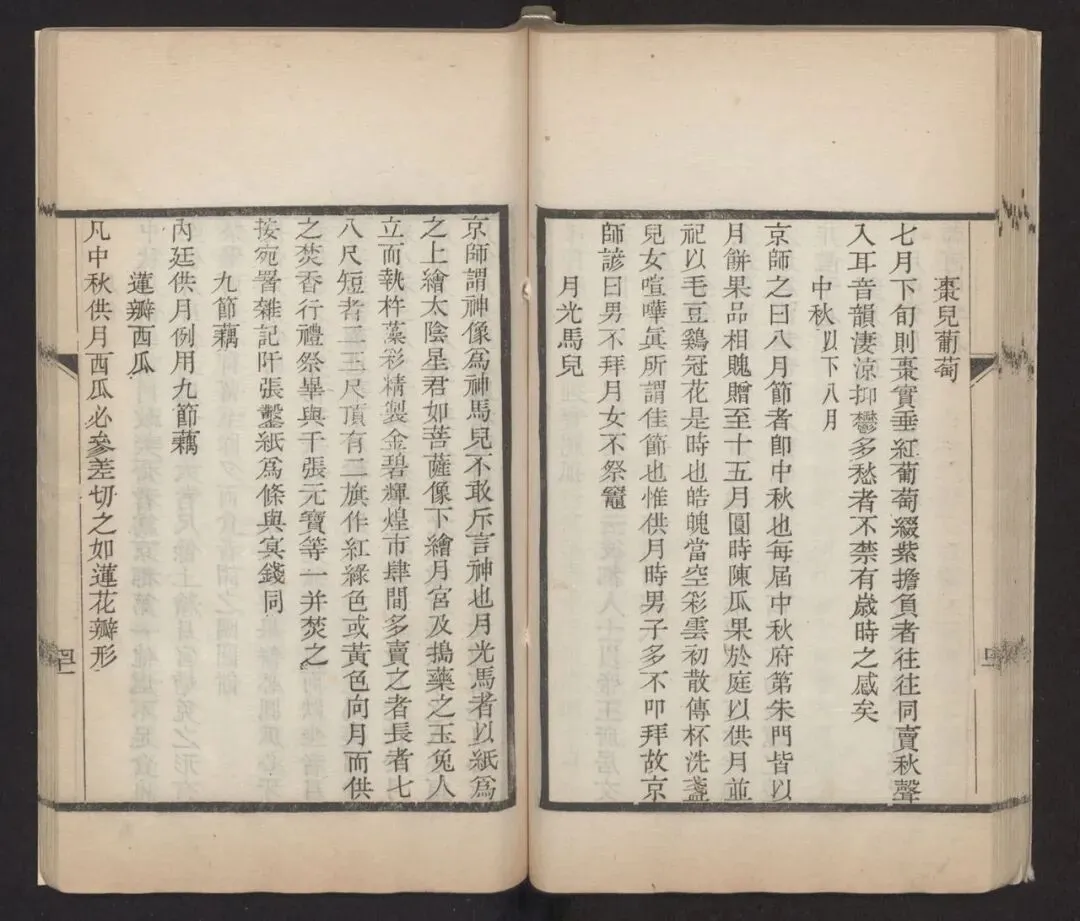 棗兒葡萄
七月下旬則棗實垂紅葡萄綴紫擔負者往往同賣秋聲
入耳音韻淒涼抑鬱多愁者不禁有歲時之感矣
中秋以下八月
京師之曰八月節者卽中秋也每屆中秋府第朱門皆以
月餅果品相餽贈至十五月圓時陳瓜果於庭以供月並
祀以毛豆鷄冠花是時也皓魄當空彩雲初散傳杯洗盞
兒女喧嘩眞所謂佳節也惟供月時男子多不叩拜故京
師諺曰男不拜月女不祭竈
月光馬兒
京師謂神像爲神馬兒不敢斥言神也月光馬者以紙爲
之上繪太陰星君如菩薩像下繪月宮及搗藥之玉兔人
立而執杵藻彩精製金碧輝煌市肆間多賣之者長者七
八尺短者二三尺頂有二旗作紅綠色或黃色向月而供
之焚香行禮祭畢與千張元寶等一并焚之
按宛署雜記阡張鑿紙爲條與冥錢同
九節藕
內廷供月例用九節藕
蓮瓣西瓜
凡中秋供月西瓜必參差切之如蓮花瓣形